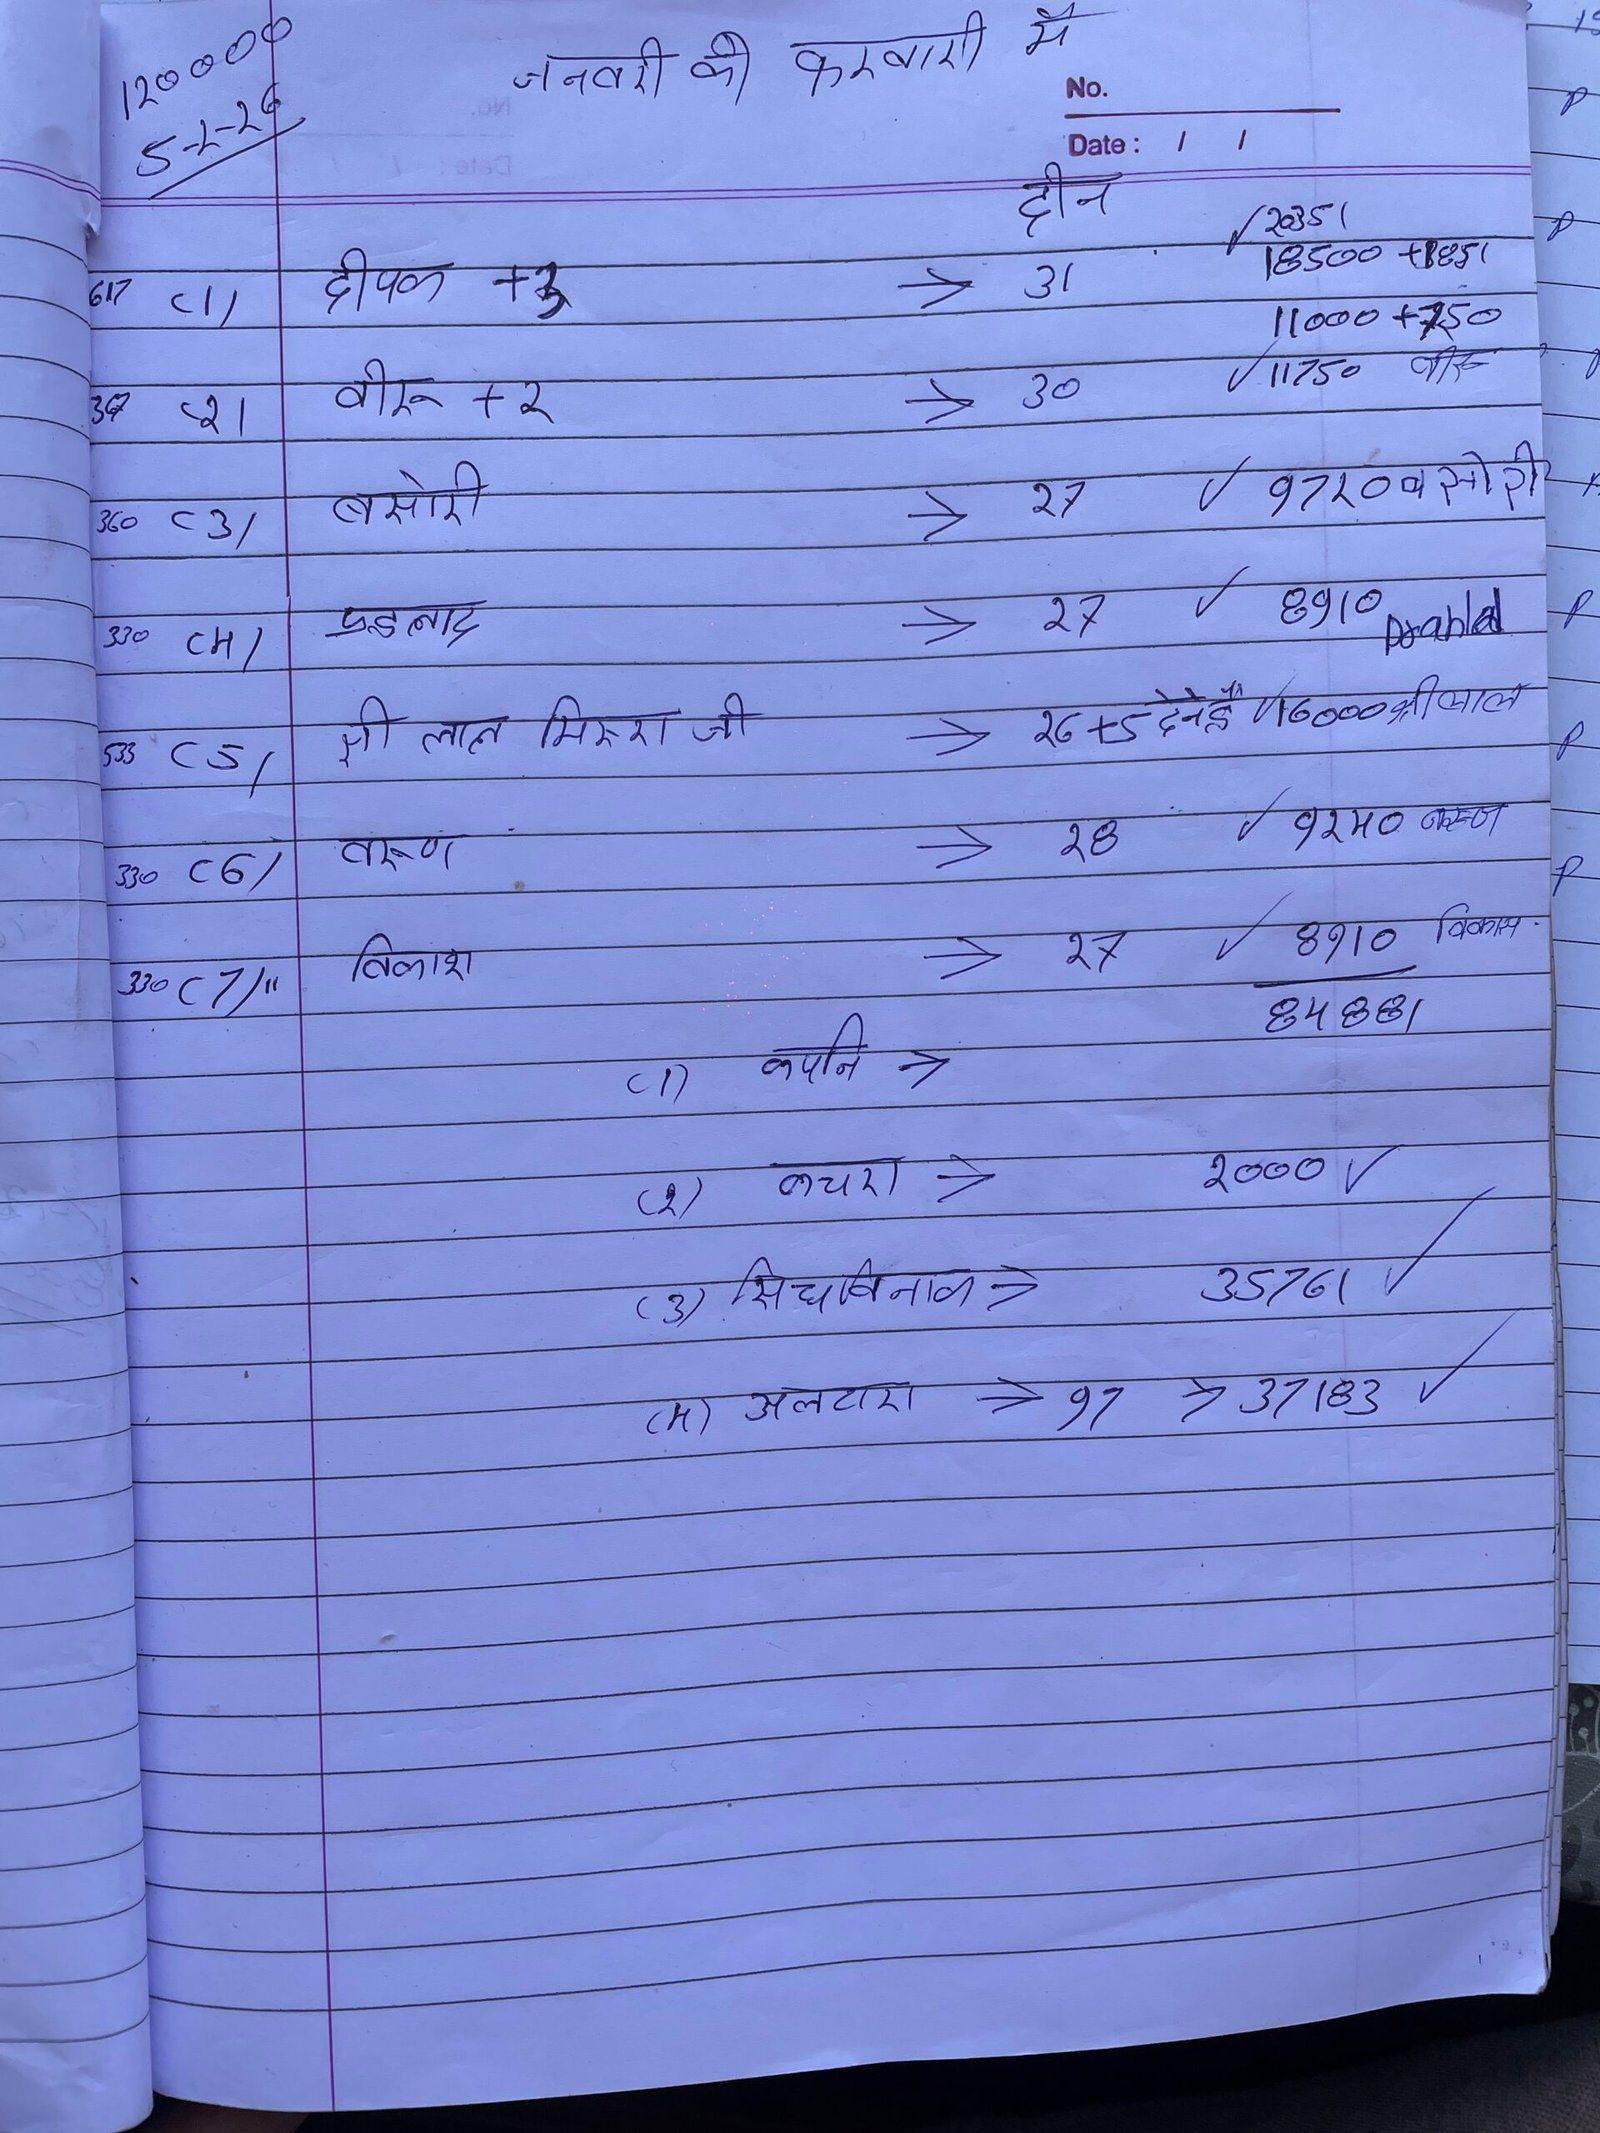 120000
5-2-26
जनवरी की फरवारी में
No.
Date : / /
दीन
✓ 20351
617 (1) दीपक +3 → 31 18500 +1851
11000 +750
367 (2) वीरू +2 → 30 ✓ 11750 वीरू
360 (3) बसोरी → 27 ✓ 9720 बसोरी
330 (4) प्रहलाद → 27 ✓ 8910 Prahlad
533 (5) श्री लाल मिश्रा जी → 26 +5 देने है ✓ 16000 श्रीलाल
330 (6) वरूण → 28 ✓ 9240 वरूण
330 (7)" विकाश → 27 ✓ 8910 विकास
84881
(1) →
(2) कचरा → 2000 ✓
(3) → 35761 ✓
(4) अलटारा → 97 → 37183 ✓